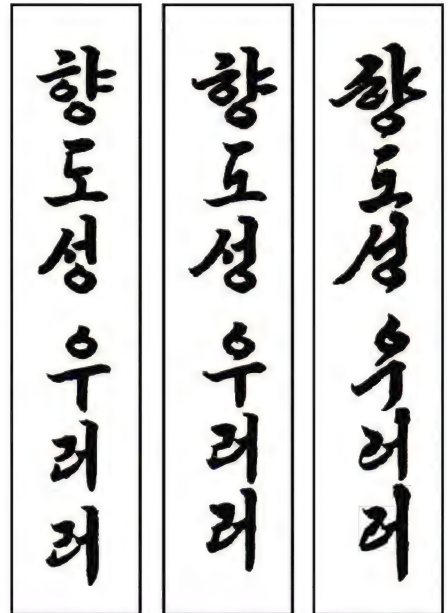 향도성 우러러
향도성 우러러
향도성 우러러